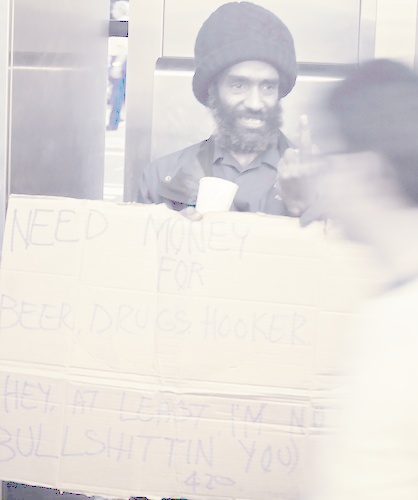 NEED MONEY
FOR
BEER, DRUGS HOOKER
HEY, AT LEAST I'M
BULLSHITTIN YOU)
420